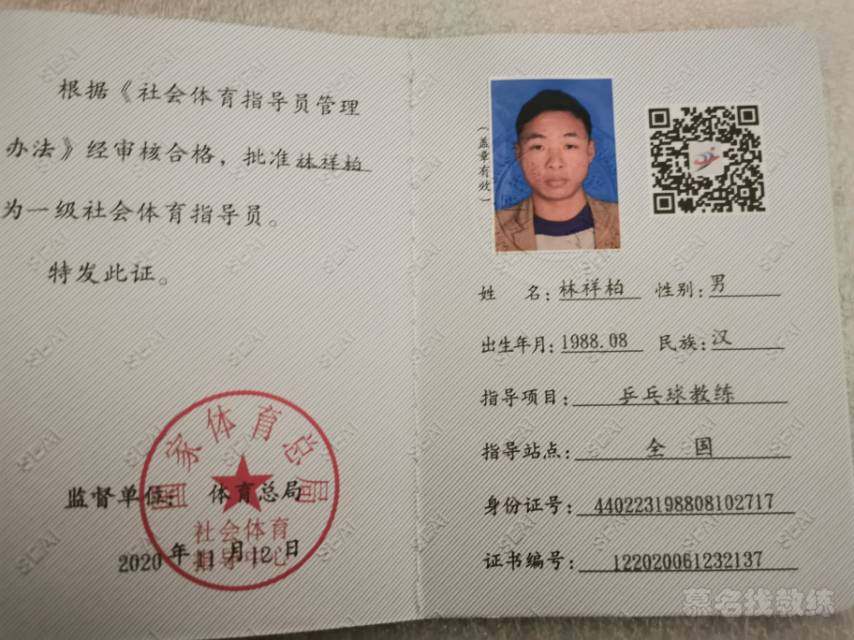 根据《社会体育指导员管理
办法》经审核合格，批准林祥柏
为一级社会体育指导员。
特发此证。
国家体育总局
社会体育
指导中心
监督单位： 体育总局
2020年11月12日
（盖章有效）
姓 名：林祥柏 性别：男
出生年月：1988.08 民族：汉
指导项目：乒乓球教练
指导站点：全 国
身份证号：440223198808102717
证书编号：122020061232137
慕名找教练